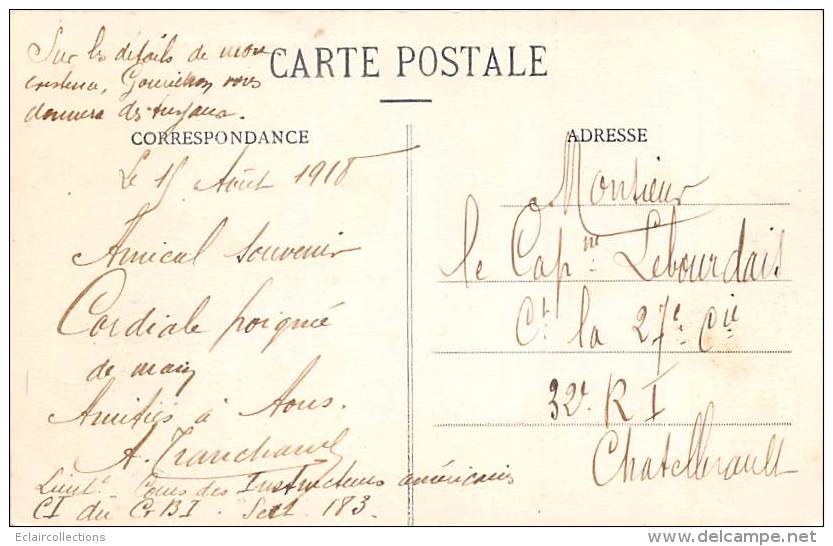 Sur les détails de mon
Gourichon, vous
donnera des tuyaux.
CARTE POSTALE
CORRESPONDANCE
Le 15 Août 1918
Amical souvenir
Cordiale poignée
de main
Amitiés à tous.
A. Tranchant
Lieutt. Cours des Instructeurs américains
CI du Cr B I. Sect 183.
ADRESSE
Monsieur
le Capne Lebourdais
Ct la 27e Cie
32e R I
Chatellerault
Eclaircollections
www.delcampe.net